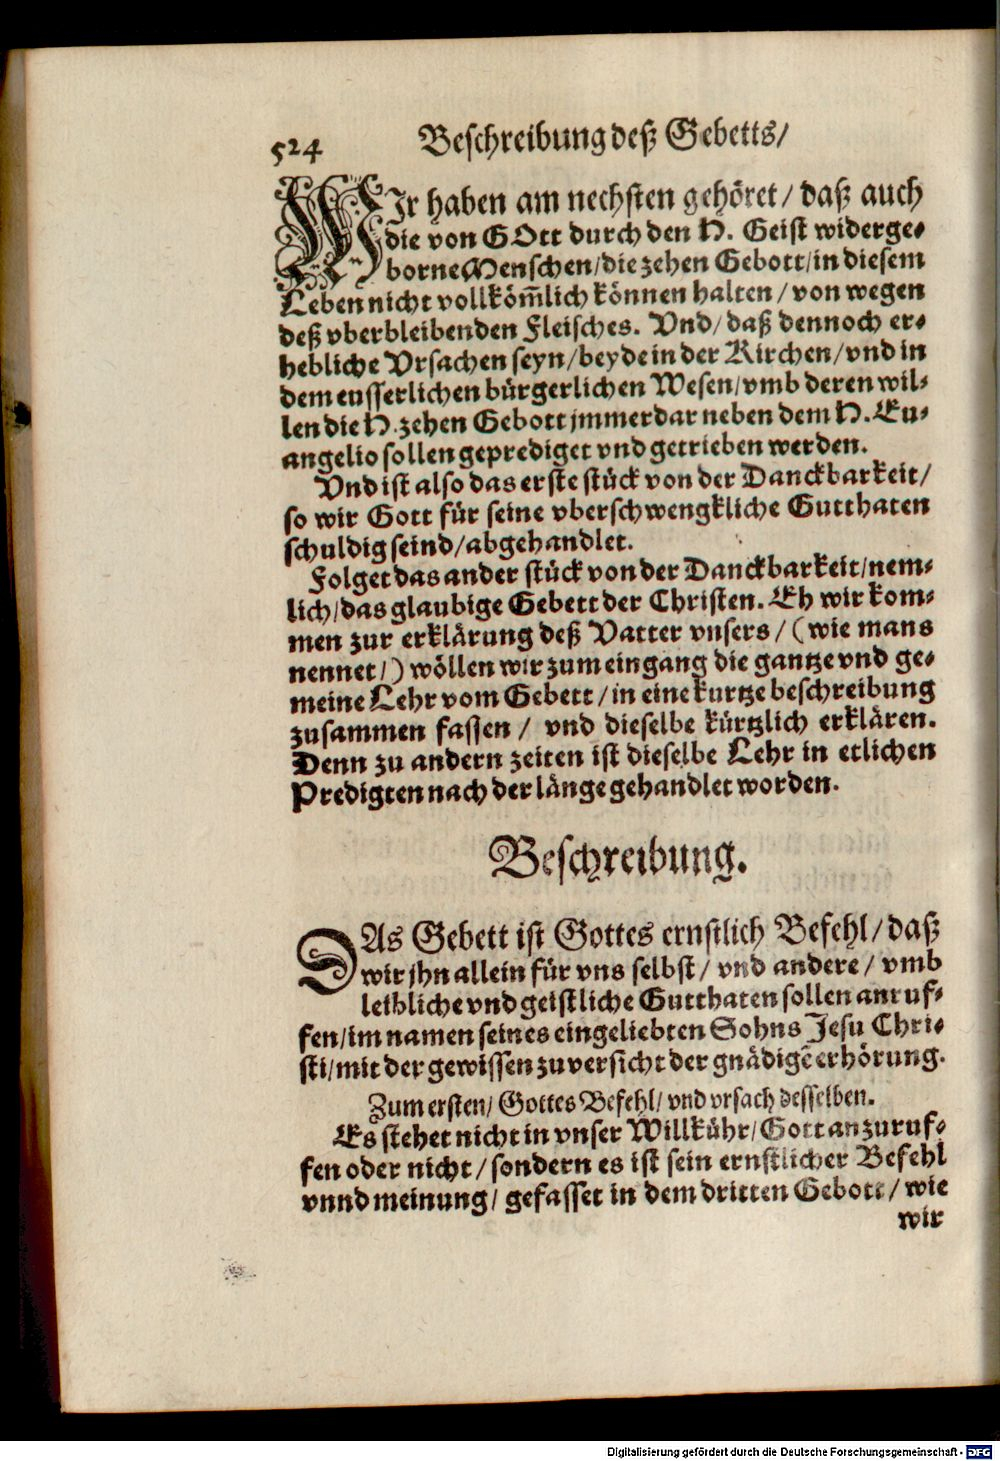 524 Beschreibung deß Gebetts/
WIr haben am nechsten gehöret/ daß auch
die von GOtt durch den H. Geist widerge-
borne Menschen/die zehen Gebott/in diesem
Leben nicht vollköm̃lich können halten/ von wegen
deß vberbleibenden Fleisches. Vnd/ daß dennoch er-
hebliche Vrsachen seyn/beyde in der Kirchen/vnd in
dem eusserlichen bürgerlichen Wesen/vmb deren wil-
len die H. zehen Gebott jmmerdar neben dem H. Eu-
angelio sollen geprediget vnd getrieben werden.
Vnd ist also das erste stück von der Danckbarkeit/
so wir Gott für seine vberschwengkliche Gutthaten
schuldig seind/abgehandlet.
Folget das ander stück von der Danckbarkeit/nem-
lich/das glaubige Gebett der Christen. Eh wir kom-
men zur erklärung deß Vatter vnsers/ (wie mans
nennet/) wöllen wir zum eingang die gantze vnd ge-
meine Lehr vom Gebett/in eine kurtze beschreibung
zusammen fassen/ vnd dieselbe kürtzlich erklären.
Denn zu andern zeiten ist dieselbe Lehr in etlichen
Predigten nach der länge gehandlet worden.
Beschreibung.
DAs Gebett ist Gottes ernstlich Befehl/daß
wir jhn allein für vns selbst/ vnd andere/ vmb
leibliche vnd geistliche Gutthaten sollen anruf-
fen/im namen seines eingeliebten Sohns Jesu Chri-
sti/mit der gewissen zuversicht der gnädigẽ erhörung.
Zum ersten/ Gottes Befehl/ vnd vrsach desselben.
Es stehet nicht in vnser Willkühr/Gott anzuruf-
fen oder nicht/sondern es ist sein ernstlicher Befehl
vnnd meinung/ gefasset in dem dritten Gebott/ wie
wir
Digitalisierung gefördert durch die Deutsche Forschungsgemeinschaft - DFG